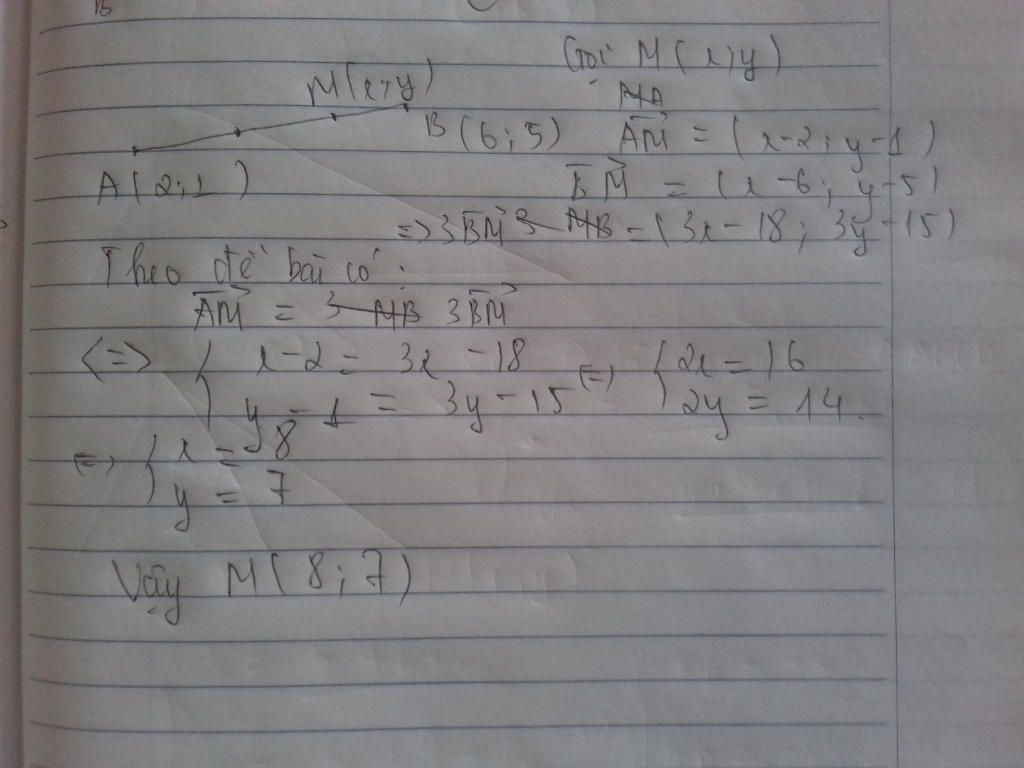 B
Gọi M(x;y)
M(x;y)
MA
B(6;5) AM = (x-2; y-1)
A(2;1) BM = (x-6; y-5)
=> 3BM 3 MB = (3x-18; 3y-15)
Theo đề bài có:
AM = 3 MB 3BM
<=> { x-2 = 3x-18 (=) { 2x = 16
y-1 = 3y-15 2y = 14.
=> { x = 8
y = 7
Vậy M(8;7)